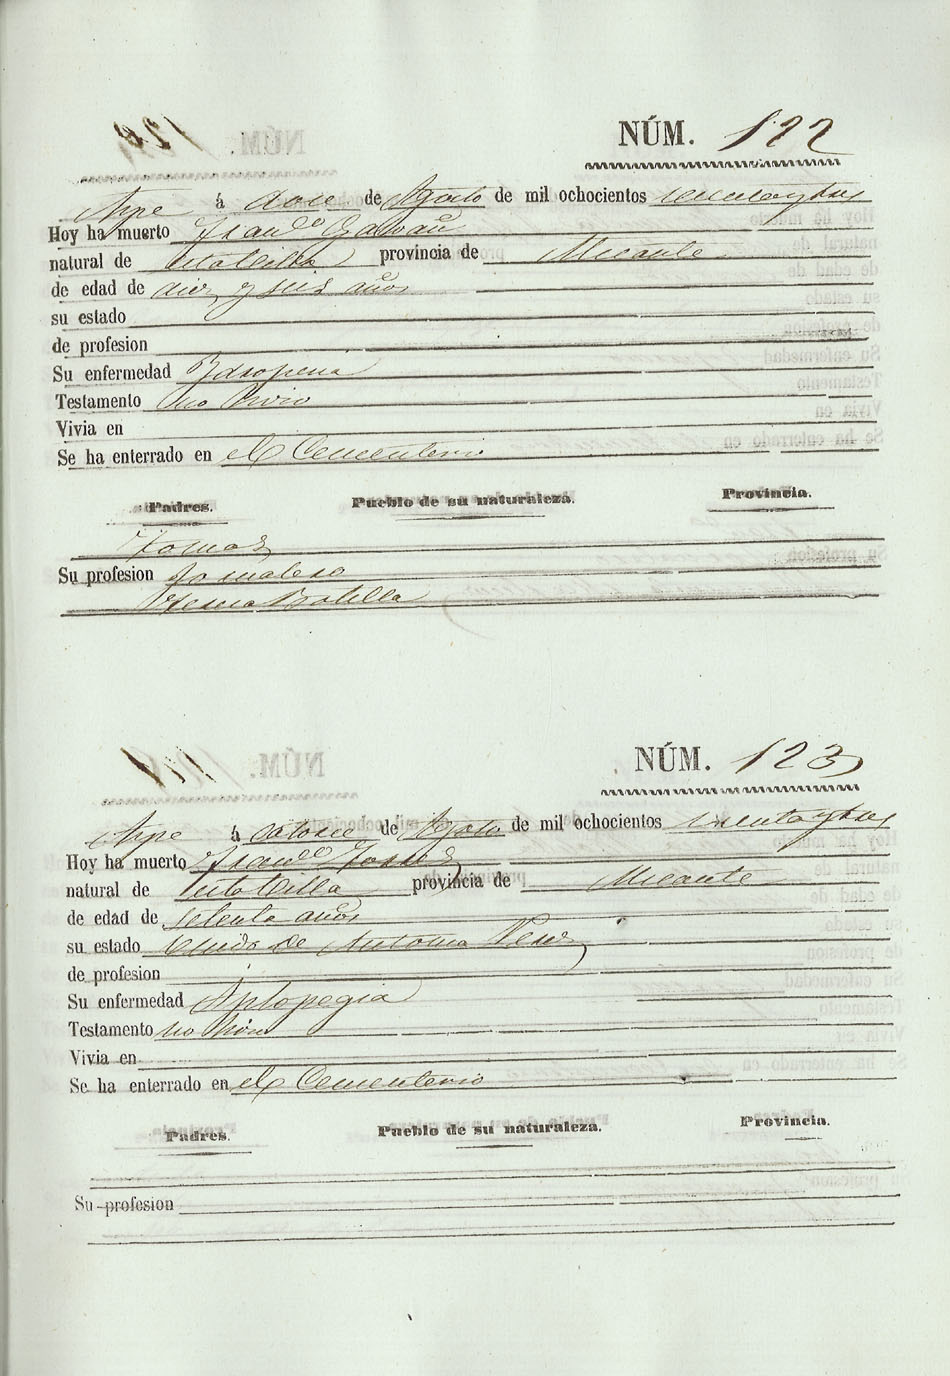 NÚM. 122
Aspe á doce de Agosto de mil ochocientos
Hoy ha muerto Franco Galvañ
natural de esta Villa provincia de Alicante
de edad de diez y seis años
su estado
de profesion
Su enfermedad
Testamento no hizo
Vivia en
Se ha enterrado en el Cementerio
Padres. Pueblo de su naturaleza. Provincia.
Tomas
Su profesion Jornalero
NÚM. 123
Aspe á catorce de Agosto de mil ochocientos
Hoy ha muerto Franco
natural de esta Villa provincia de Alicante
de edad de setenta años
su estado Viudo de Antonia Perez
de profesion
Su enfermedad
Testamento no hizo
Vivia en
Se ha enterrado en el Cementerio
Padres. Pueblo de su naturaleza. Provincia.
Su profesion